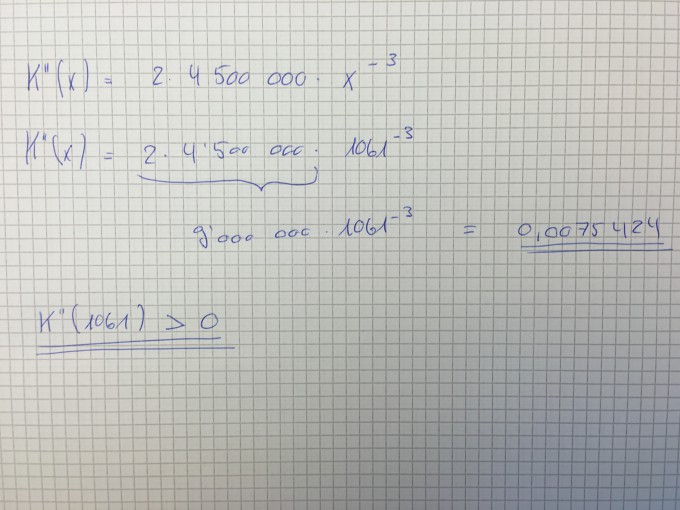 K''(x) = 2 · 4 500 000 · x⁻³
K''(x) = 2 · 4'500 000 · 1061⁻³
9'000 000 · 1061⁻³ = 0,0075424
K''(1061) > 0